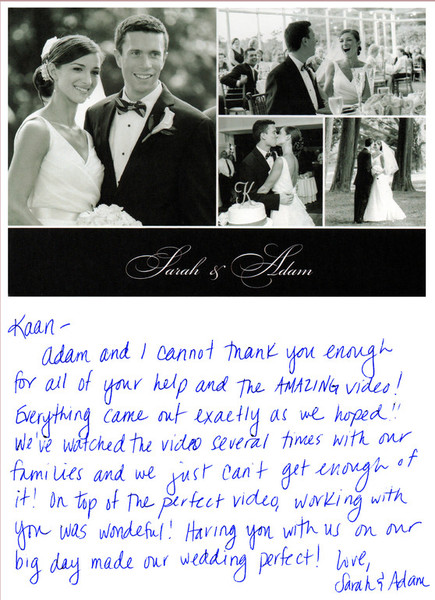 K
Sarah & Adam
Kaan-
Adam and I cannot thank you enough
for all of your help and the AMAZING video!
Everything came out exactly as we hoped!!
We've watched the video several times with our
families and we just can't get enough of
it! On top of the perfect video, working with
you was wondeful! Having you with us on our
big day made our wedding perfect! Love,
Sarah & Adam